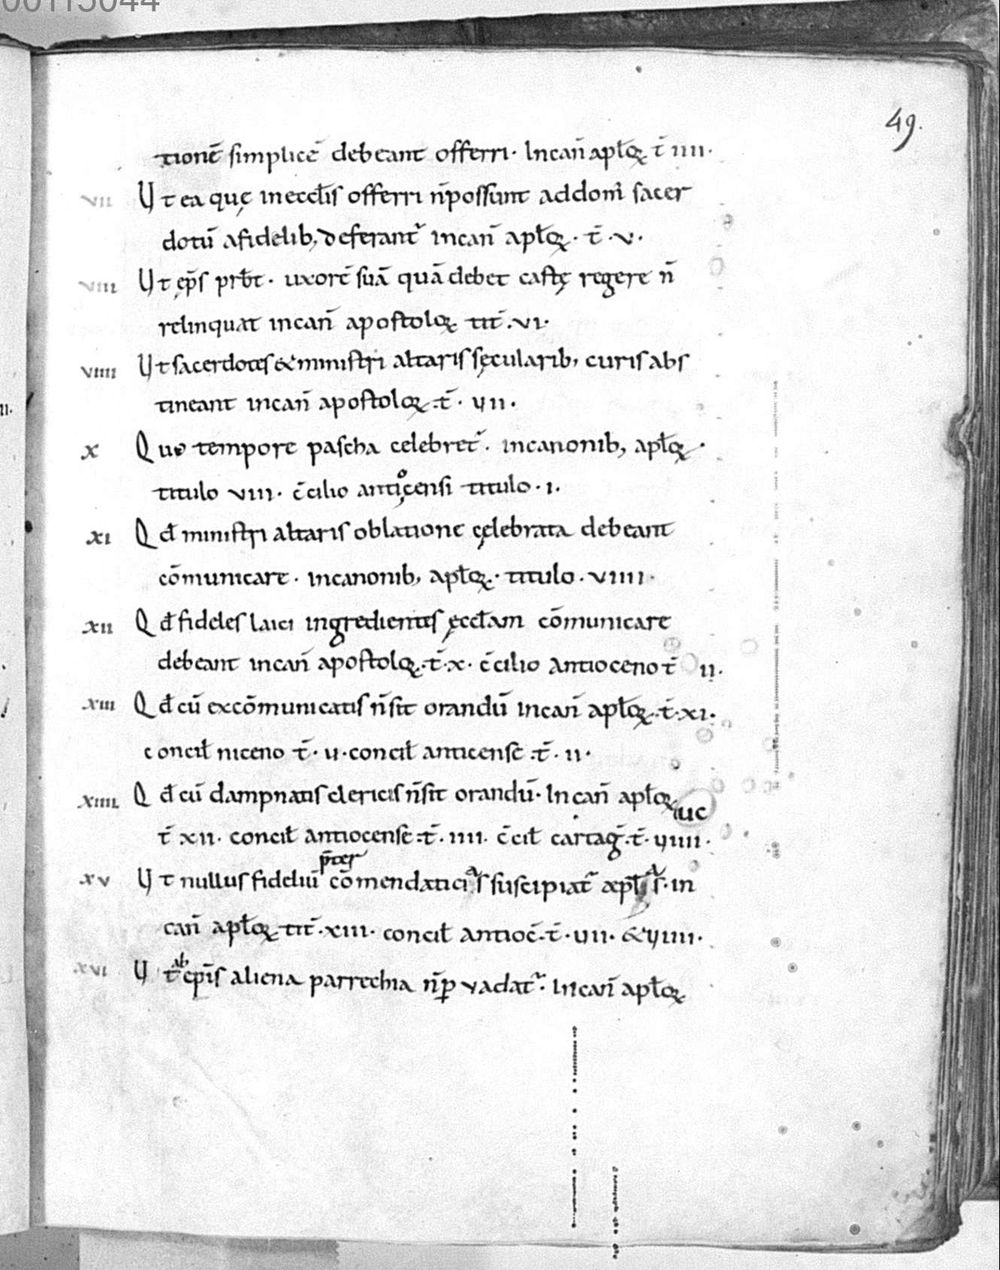 00115044
49.
tionē simplicē debeant offerri. Incan̄ aplōꝝ t̄ IIII.
VII Ut ea quę in eccl̄is offerri n̄ possunt ad dom̄ sacer
dotū a fidelib; deferant᷑ in can̄ aplōꝝ. t̄. v.
VIII Ut ep̄s prb̄t. uxorē suā quā debet castę regere n̄
relinquat in can̄ apostoloꝝ tit̄. VI.
VIIII Ut sacerdotes & ministri altaris sęcularib; curis abs
tineant in can̄ apostoloꝝ. t̄. VII.
X Quo tempore pascha celebret᷑. in canonib; aplōꝝ.
titulo VIII. c̄cilio antiocensi titulo. I.
XI Qđ ministri altaris oblatione cęlebrata debeant
cōmunicare. in canonib; aplōꝝ. titulo. VIIII.
XII Qđ fideles laici ingredientes ęccl̄am cōmunicare
debeant in can̄ apostoloꝝ. t̄. X. c̄cilio antioceno t̄ II.
XIII Qđ cū excōmunicatis n̄ sit orandū in can̄ aplōꝝ. t̄. XI.
concil̄ niceno t̄. V. concil̄ anticensē. t̄. II.
XIIII Qđ cū dampnatis clericis n̄ sit orandū. In can̄ aplōꝝ
t̄ XII. concil̄ antiocensē. t̄. IIII. c̄cil̄ cartag̅. t̄. VIIII.
XV Ut nullus fideliū p̄ter cōmendaticias suscipiat᷑ aepl̄as. in
can̄ aplōꝝ tit̄. XIII. concil̄ antioc̄. t̄. VII. & VIIII.
XVI Ut ab ep̄is aliena parrechia n̄ p̱vadat᷑. In can̄ aplōꝝ